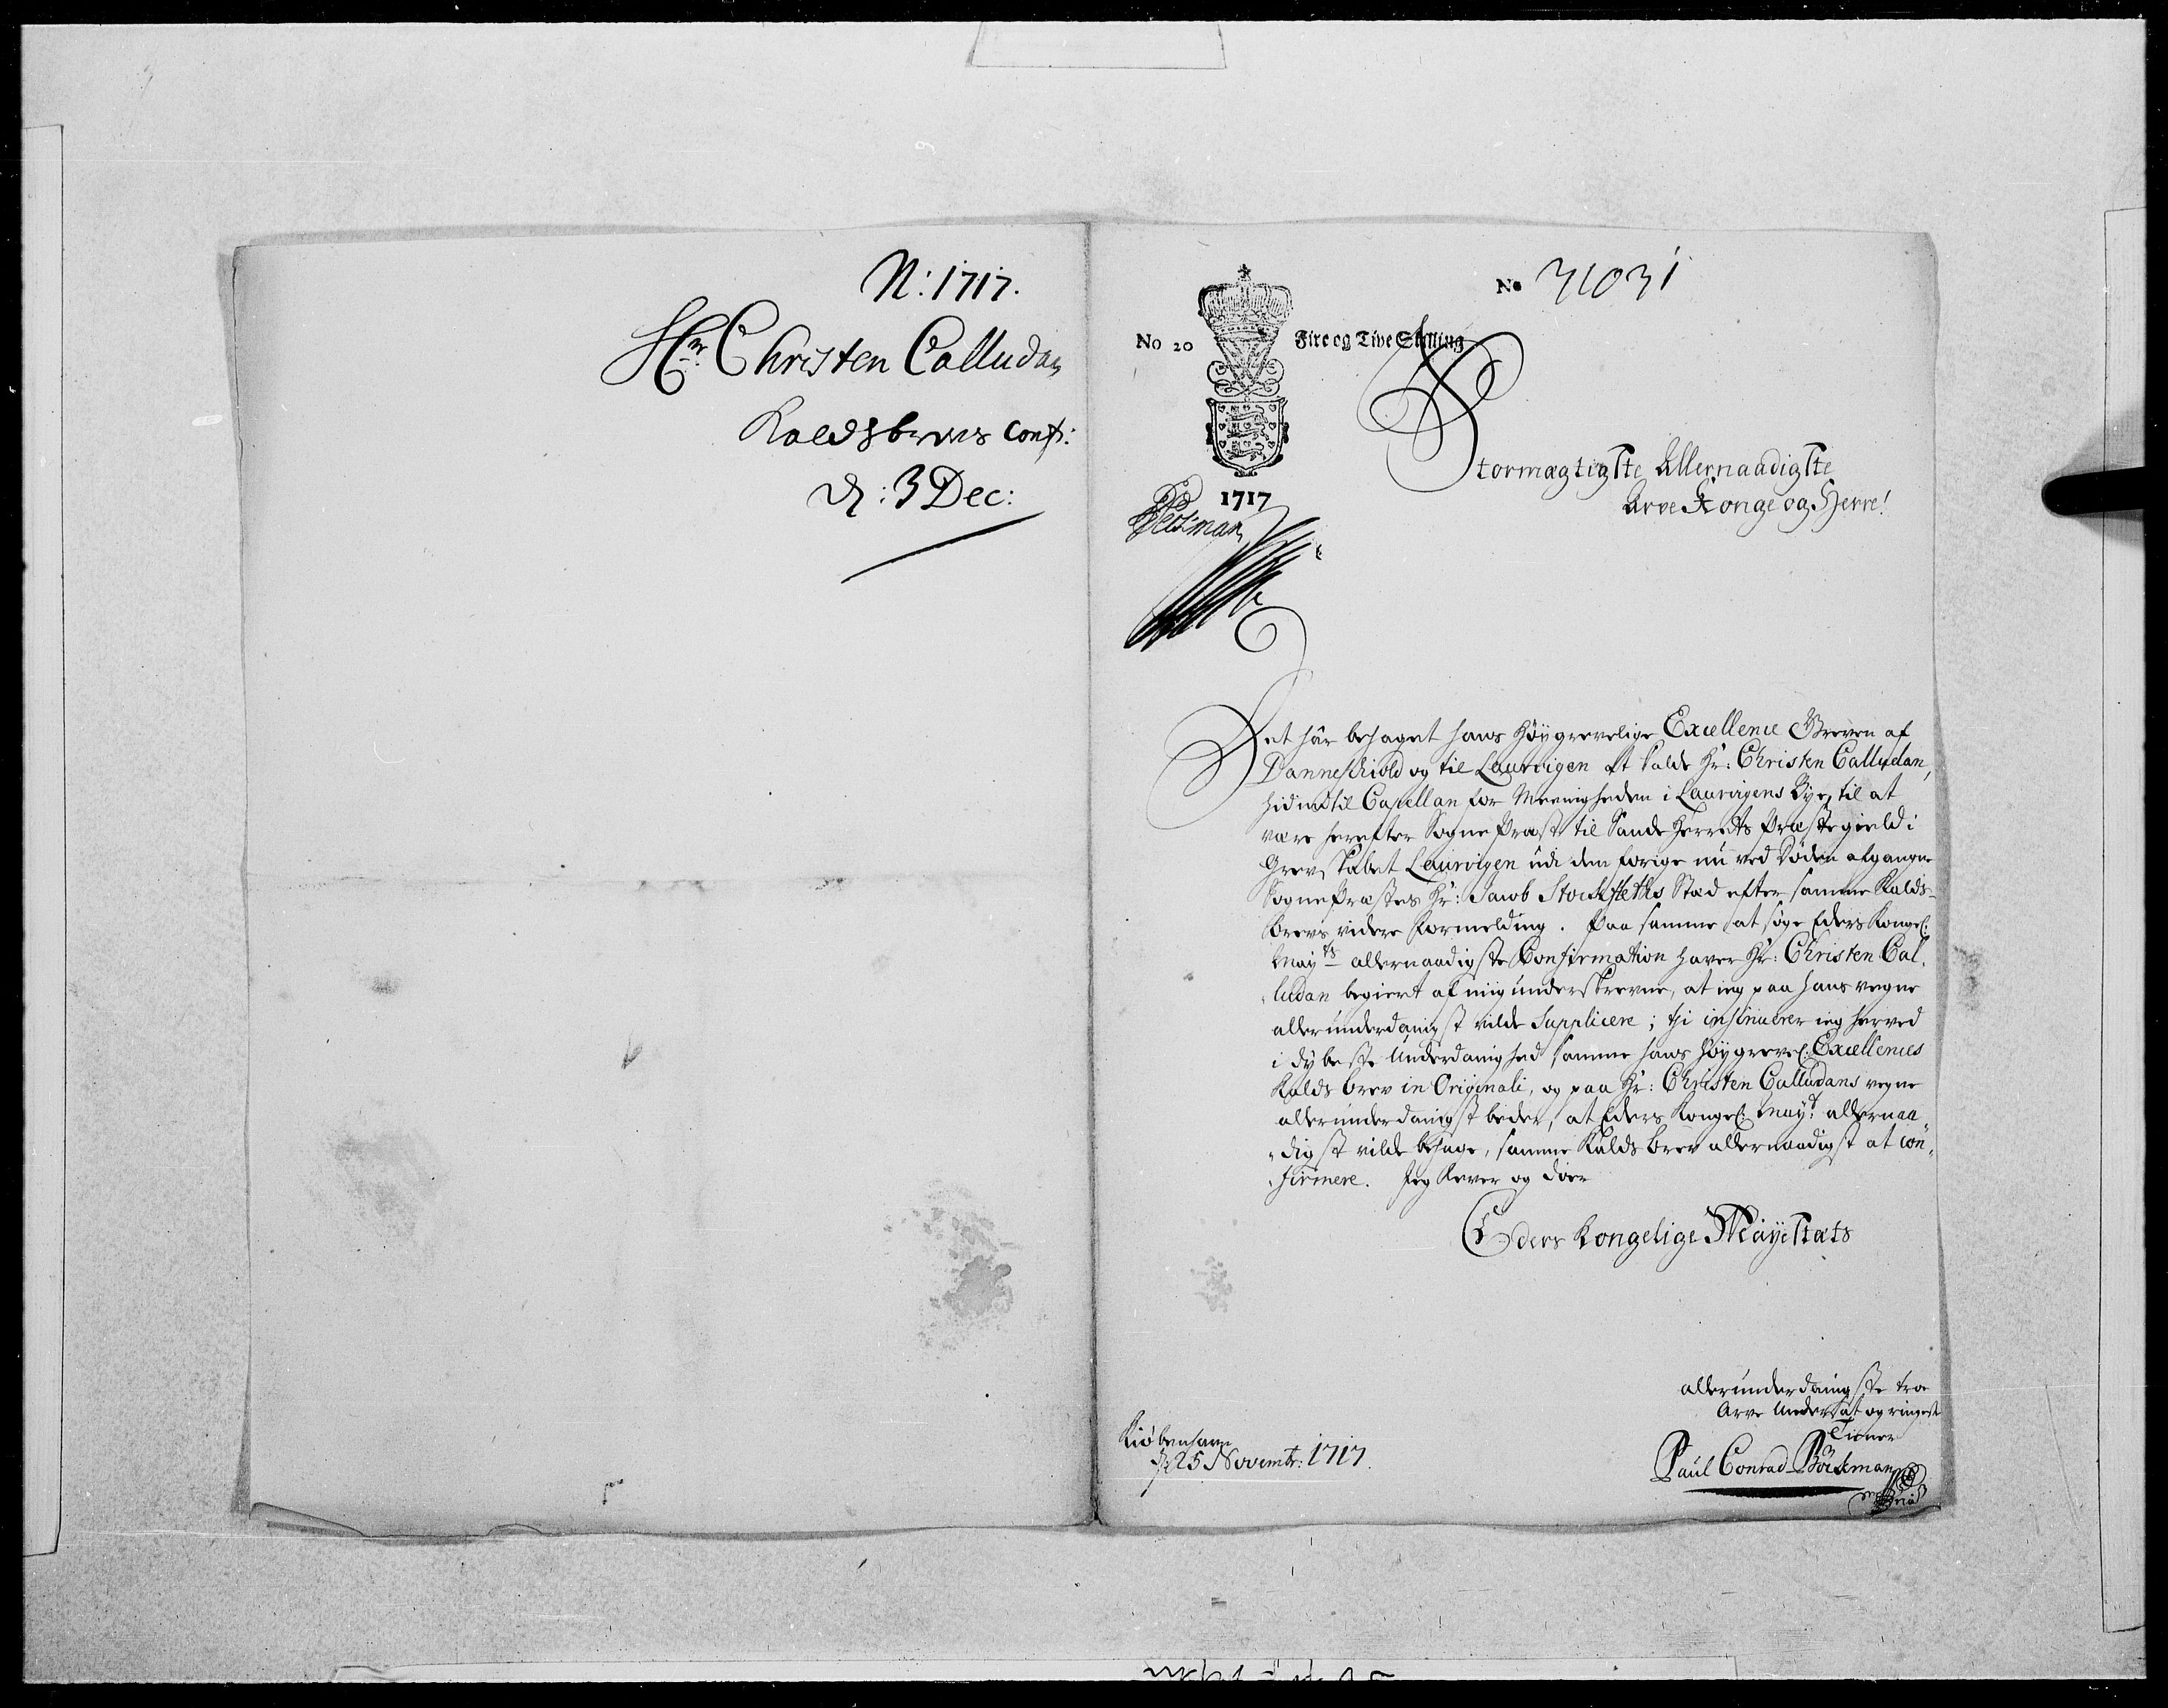 N: 1717.
Hr. Christen Calludan
Kaldsbrevs Conf:
d: 3 Dec:
No 20
Fire og Tive Skilling
No 31031
1717
Stormægtigste Allernaadigste
Arve Konge og Herre!
Det har behaget hans Høygrevelige Excellence Greven af
Danneschiold og til Laurvigen at kalde Hr: Christen Calludan,
hidindtil Capellan for Meenigheden i Laurvigens Bye, til at
være herefter Sogne Præst til Sande Herreds Præstegield i
Grevskabet Laurvigen udi den forige nu ved Døden afgangne
Sogne Præstes Hr: Jacob Stockfleths Stæd efter samme Kalds-
brevs videre Formelding. Paa samme at søge Eders Kongel:
May.ts allernaadigste Confirmation haver Hr: Christen Cal,
,ludan begiert af mig underskrevne, at ieg paa hans vegne
allerunderdanigst vilde Supplicere; thi insinuerer ieg herved
i dybeste Underdanighed samme hans Høygrevel: Excellences
Kalds brev in Originali, og paa Hr: Christen Calludans vegne
allerunderdanigst beder, at Eders Kongel: May.t allernaa,,
,,digst vilde behage, samme Kalds brev allernaadigst at con,,
,,firmere. Jeg lever og døer
Eders Kongelige Mayestæts
allerunderdanigste troe
Arve Undersaat og ringeste
Tiener
Kiøbenhavn
d: 25 Novembr: 1717.
Paul Conrad Böckman